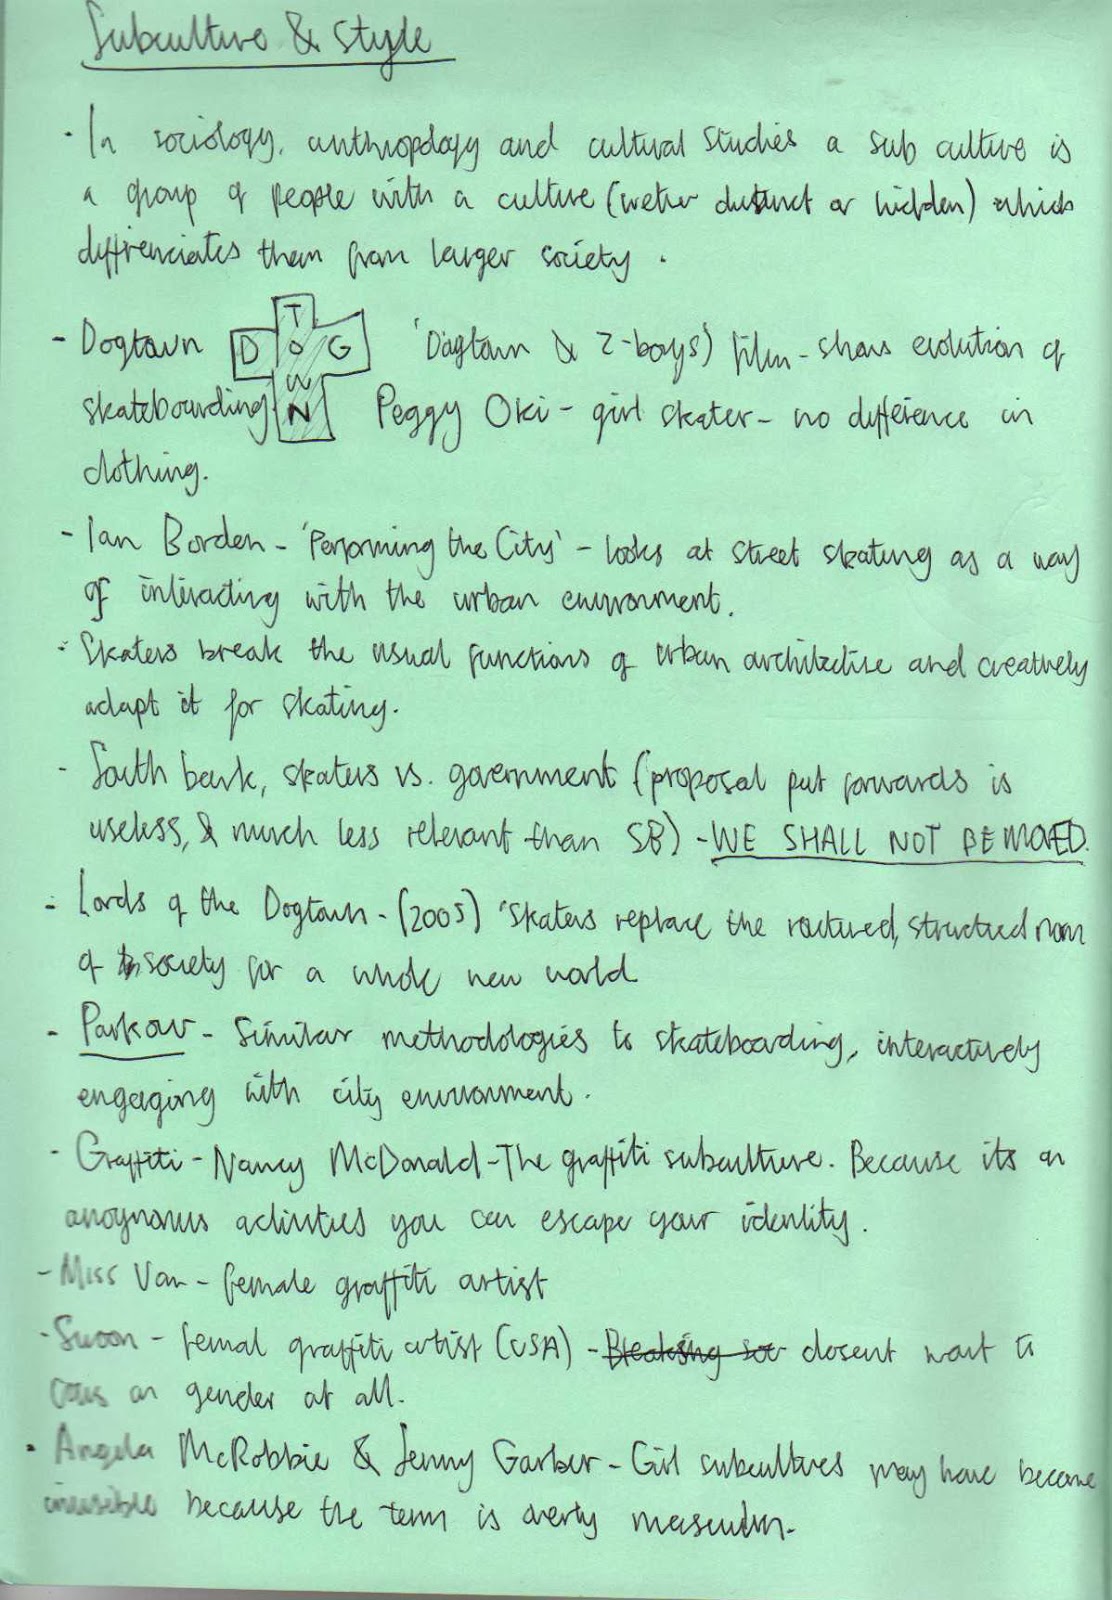 Subculture & Style
· In sociology, anthropology and cultural studies a sub culture is
a group of people with a culture (wether distinct or hidden) which
diffrenciates them from larger society.
- Dogtown T 'Dogtown & Z-boys' film - shows evolution of
D O G
W
skateboarding N Peggy Oki - girl skater - no difference in
clothing.
- Ian Borden - 'Performing the City' - looks at street skating as a way
of interacting with the urban environment.
- Skaters break the usual functions of urban architecture and creatively
adapt it for skating.
- South bank, skaters vs. government (proposal put forwards is
useless, & much less relevant than SB) - WE SHALL NOT BE MOVED.
- Lords of the Dogtown - (2005) 'Skaters replace the structured norm
of society for a whole new world
- Parkour - Similar methodologies to skateboarding, interactively
engaging with city environment.
- Graffiti - Nancy McDonald - The graffiti subculture. Because its an
anoynomus activities you can escape your identity.
- Miss Van - female graffiti artist
- Swoon - femal graffiti artist (USA) - Breaking dosent want to
focus on gender at all.
· Angela McRobbie & Jenny Garber - Girl subcultures may have become
invisible because the term is overly masculin.